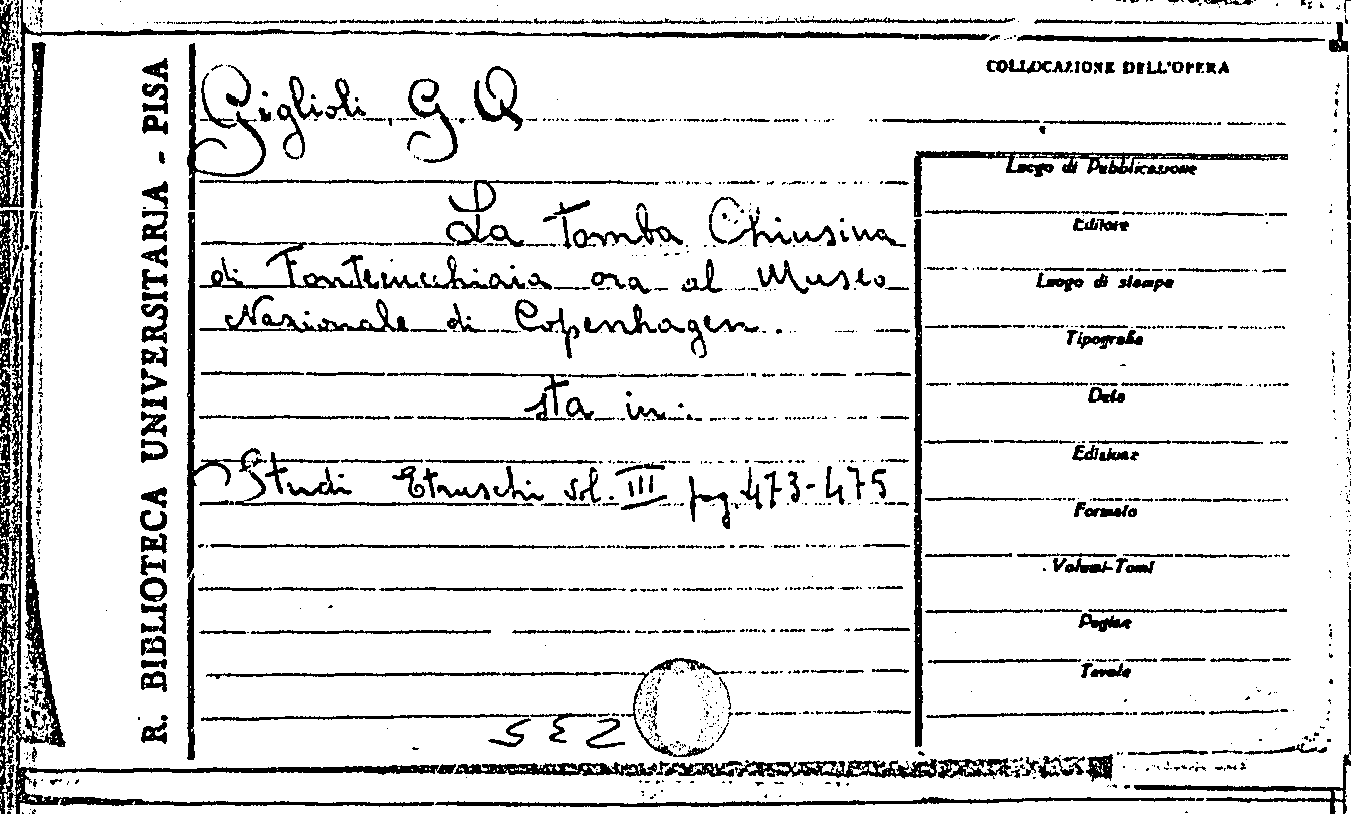 R. BIBLIOTECA UNIVERSITARIA - PISA
COLLOCAZIONE DELL'OPERA
Giglioli, G. Q
La Tomba Chiusina
di Fontecucchiaia ora al Museo
Nazionale di Copenhagen.
sta in:
Studi Etruschi vol. III pag. 473-475
Luogo di Pubblicazione
Editore
Luogo di stampa
Tipografia
Data
Edizione
Formato
Volumi-Tomi
Pagine
Tavole